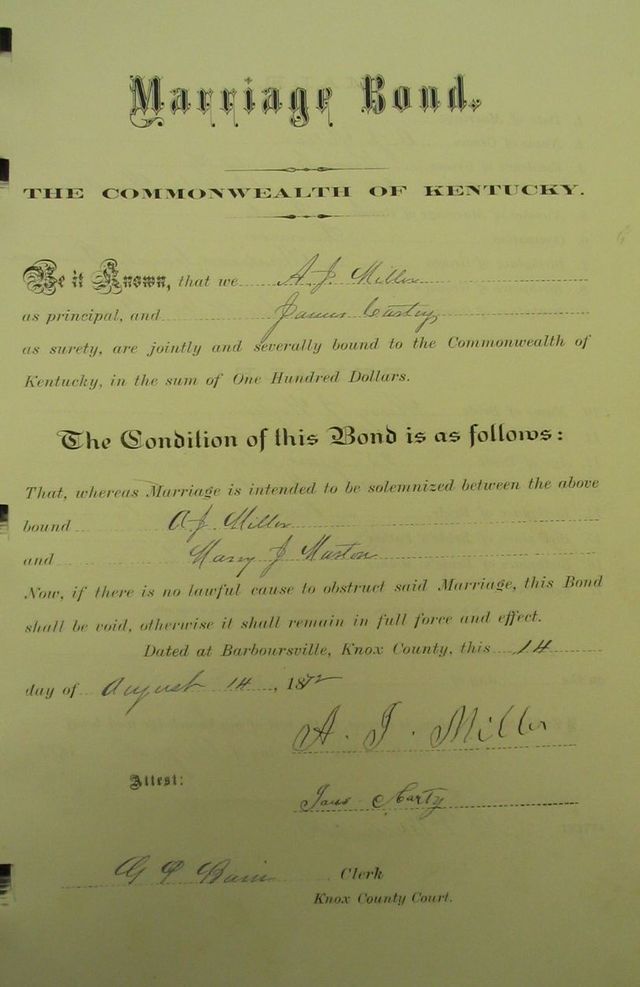 Marriage Bond.
THE COMMONWEALTH OF KENTUCKY.
Be it Known, that we A. J. Miller
as principal, and James
as surety, are jointly and severally bound to the Commonwealth of
Kentucky, in the sum of One Hundred Dollars.
The Condition of this Bond is as follows:
That, whereas Marriage is intended to be solemnized between the above
bound A J Miller
and Mary J
Now, if there is no lawful cause to obstruct said Marriage, this Bond
shall be void, otherwise it shall remain in full force and effect.
Dated at Barboursville, Knox County, this 14
day of August 14, 1872
A. J. Miller
Attest:
Clerk
Knox County Court.